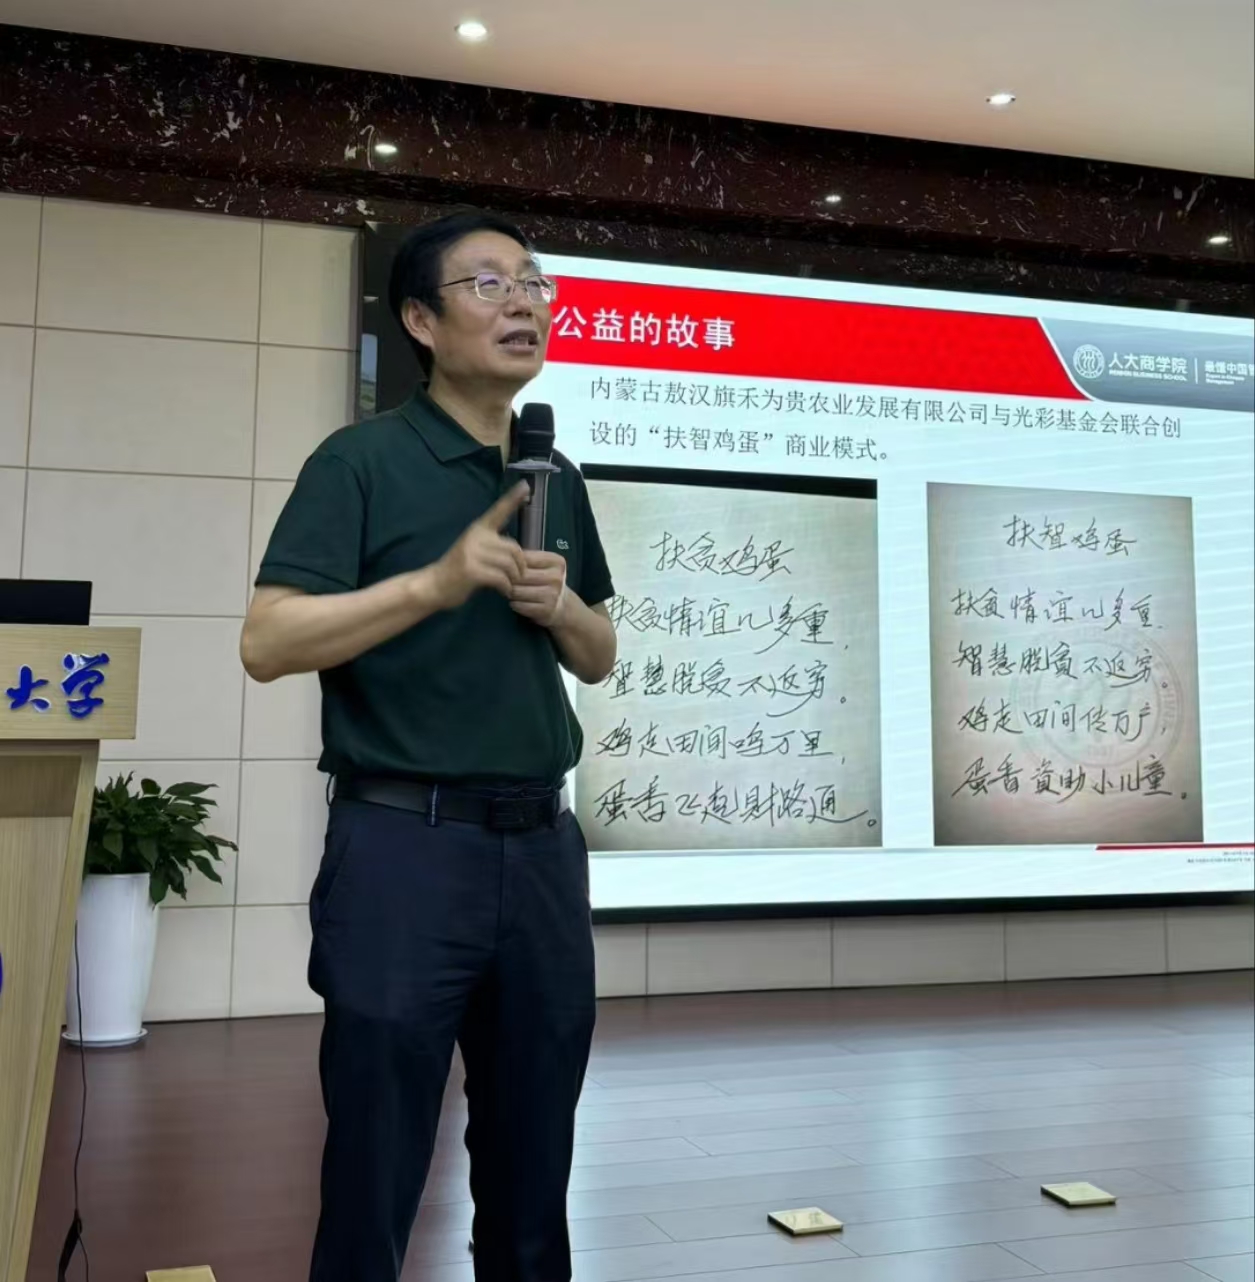 公益的故事
人大商学院
RENMIN BUSINESS SCHOOL
最懂中国管
内蒙古敖汉旗禾为贵农业发展有限公司与光彩基金会联合创
设的“扶智鸡蛋”商业模式。
扶贫鸡蛋
扶贫情谊几多重，
智慧脱贫不返穷。
鸡走田间鸣万里，
蛋香飞越财路通。
扶智鸡蛋
扶贫情谊几多重，
智慧脱贫不返穷。
鸡走田间传万户，
蛋香资助小儿童。
大学